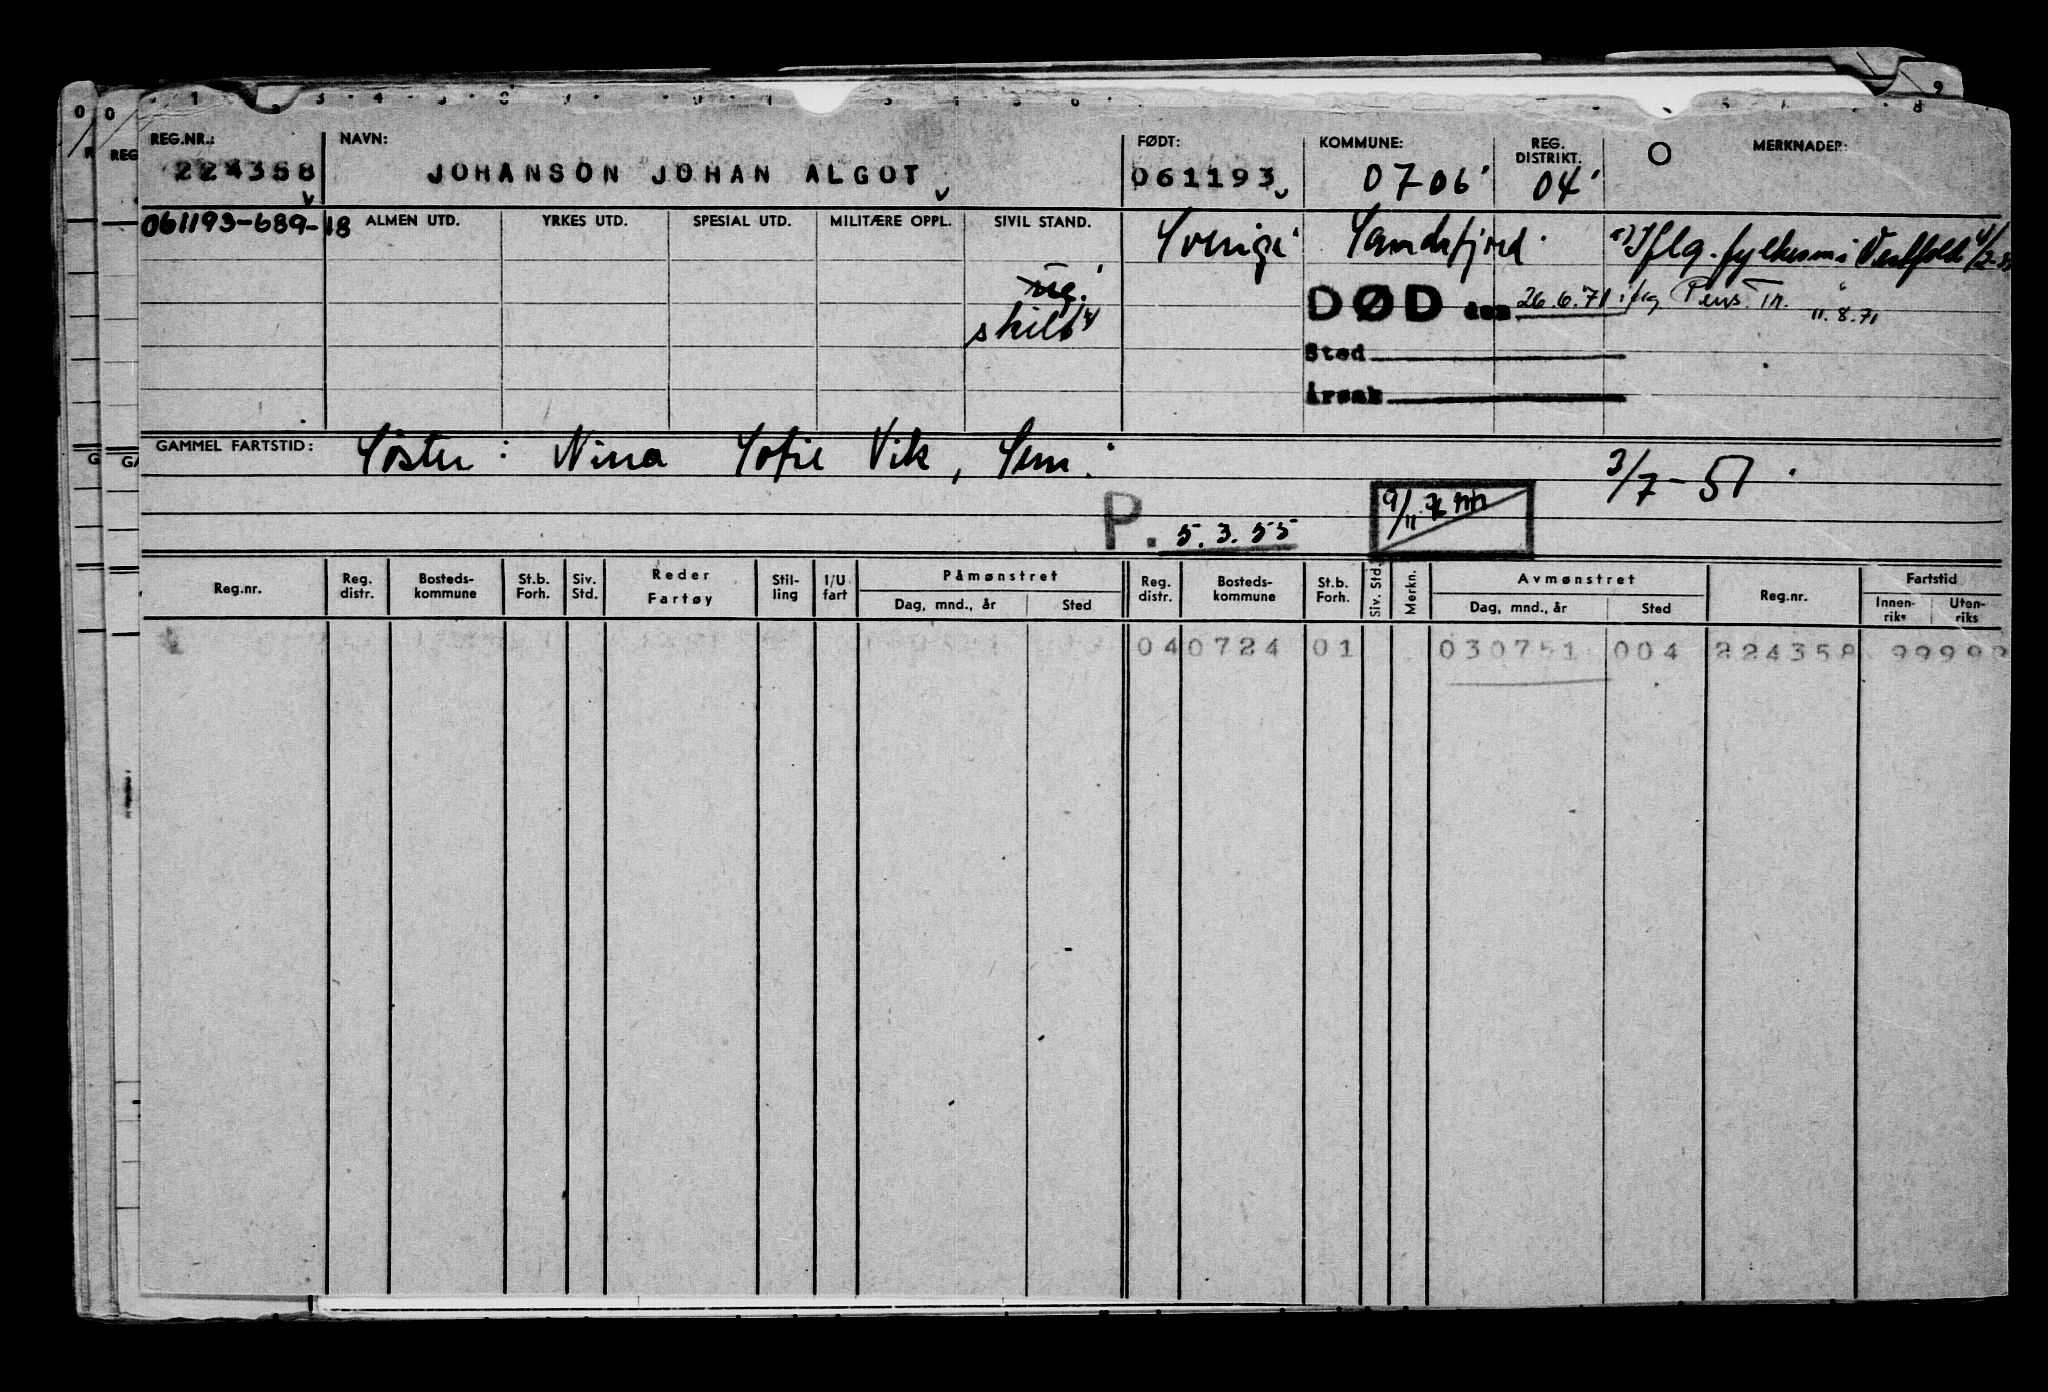 REG.NR.: NAVN: FØDT: KOMMUNE: REG. DISTRIKT. MERKNADER:
224358 JOHANSON JOHAN ALGOT 061193 0706 04
061193-689-18 ALMEN UTD. YRKES UTD. SPESIAL UTD. MILITÆRE OPPL. SIVIL STAND. Sverige Sandefjord Iflg. fylkesm i Vestfold
ug.
skilt
DØD den 26.6.71 iflg Pens. Tr. 11.8.71
Sted
Årsak
GAMMEL FARTSTID: Söster: Nina Sofie Vik, Sem. 3/7-51
P. 5.3.55 9/11
Reg.nr. Reg. distr. Bosteds-kommune St.b. Forh. Siv. Std. Reder Fartøy Stil-ling I/U fart Påmønstret Dag, mnd., år Sted Reg. distr. Bosteds-kommune St.b. Forh. Siv. Std. Merkn. Avmønstret Dag, mnd., år Sted Reg.nr. Fartstid Innen-riks Uten-riks
04 0724 01 030751 004 224358 99999